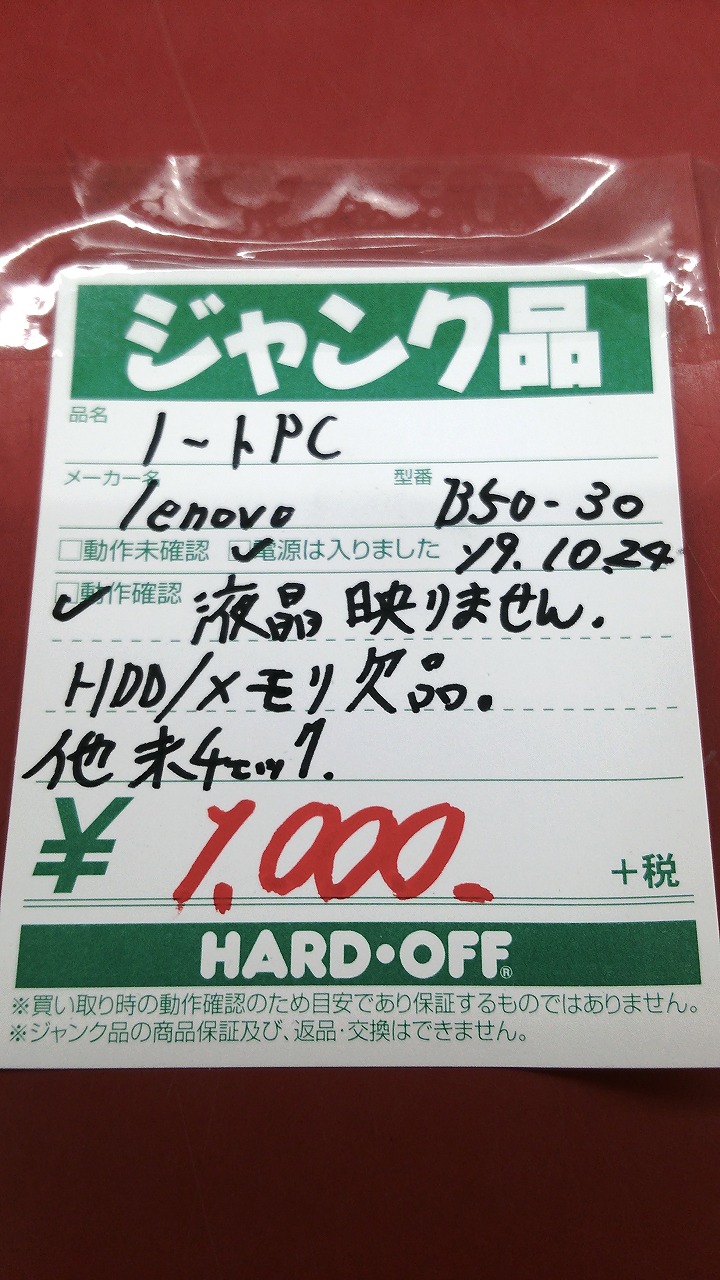 ジャンク品
品名 ノートPC
メーカー名 lenovo 型番 B50-30
□動作未確認 □電源は入りました '19.10.24
□動作確認 液晶 映りません.
HDD/メモリ欠品.
他 未チェック.
¥ 1,000. +税
HARD・OFF®
※買い取り時の動作確認のため目安であり保証するものではありません。
※ジャンク品の商品保証及び、返品・交換はできません。